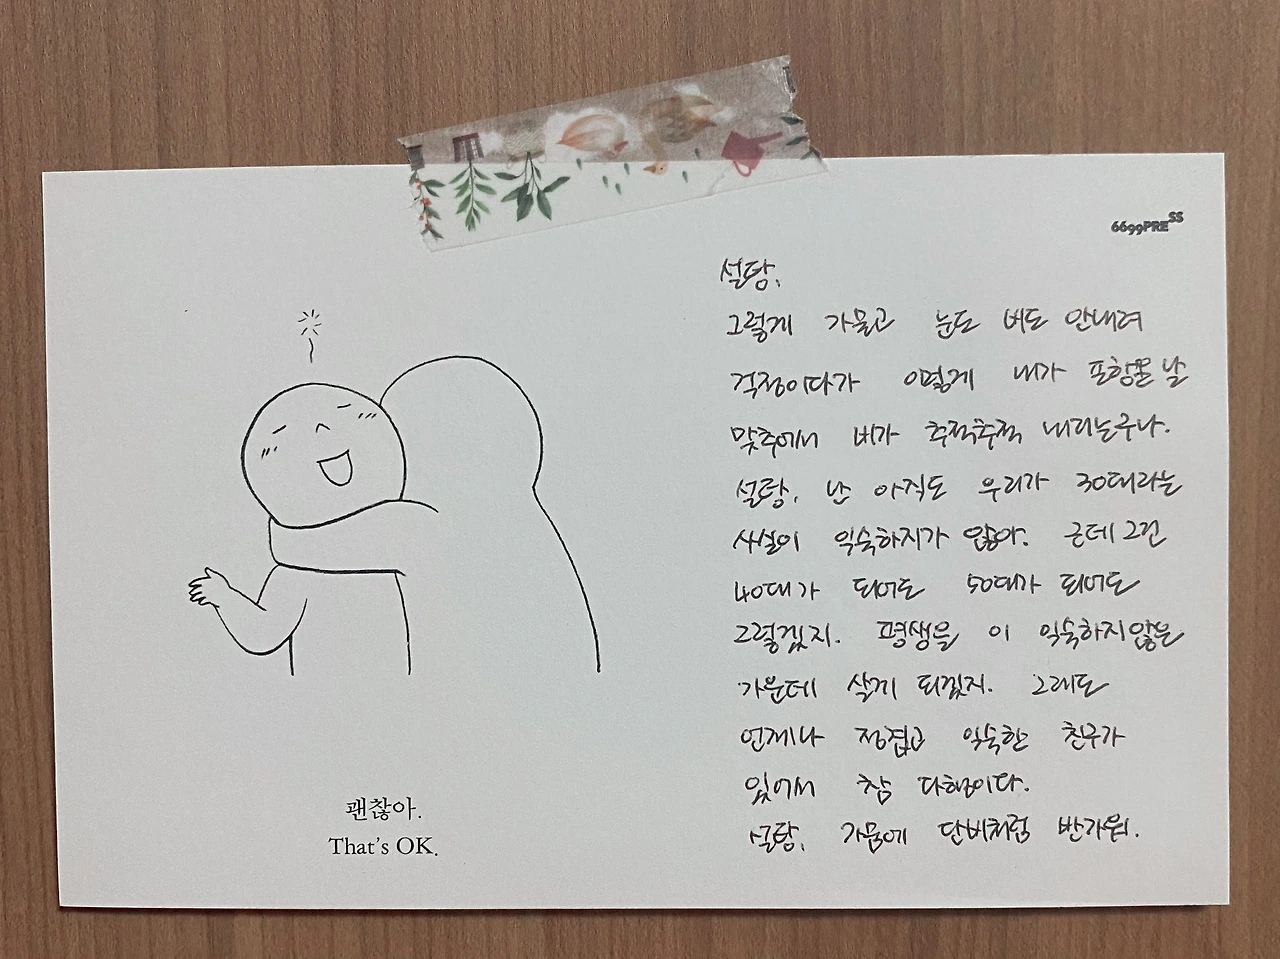 6699PRESS
설탕,
그렇게 가물고 눈도 비도 안내려
걱정이다가 어떻게 내가 포항올 날
맞추어서 비가 추적추적 내리는구나.
설탕, 난 아직도 우리가 30대라는
사실이 익숙하지가 않아. 근데 그건
40대가 되어도 50대가 되어도
그렇겠지. 평생을 이 익숙하지않은
가운데 살게 되겠지. 그래도
언제나 정겹고 익숙한 친구가
있어서 참 다행이다.
설탕, 가뭄에 단비처럼 반가워.
괜찮아.
That's OK.